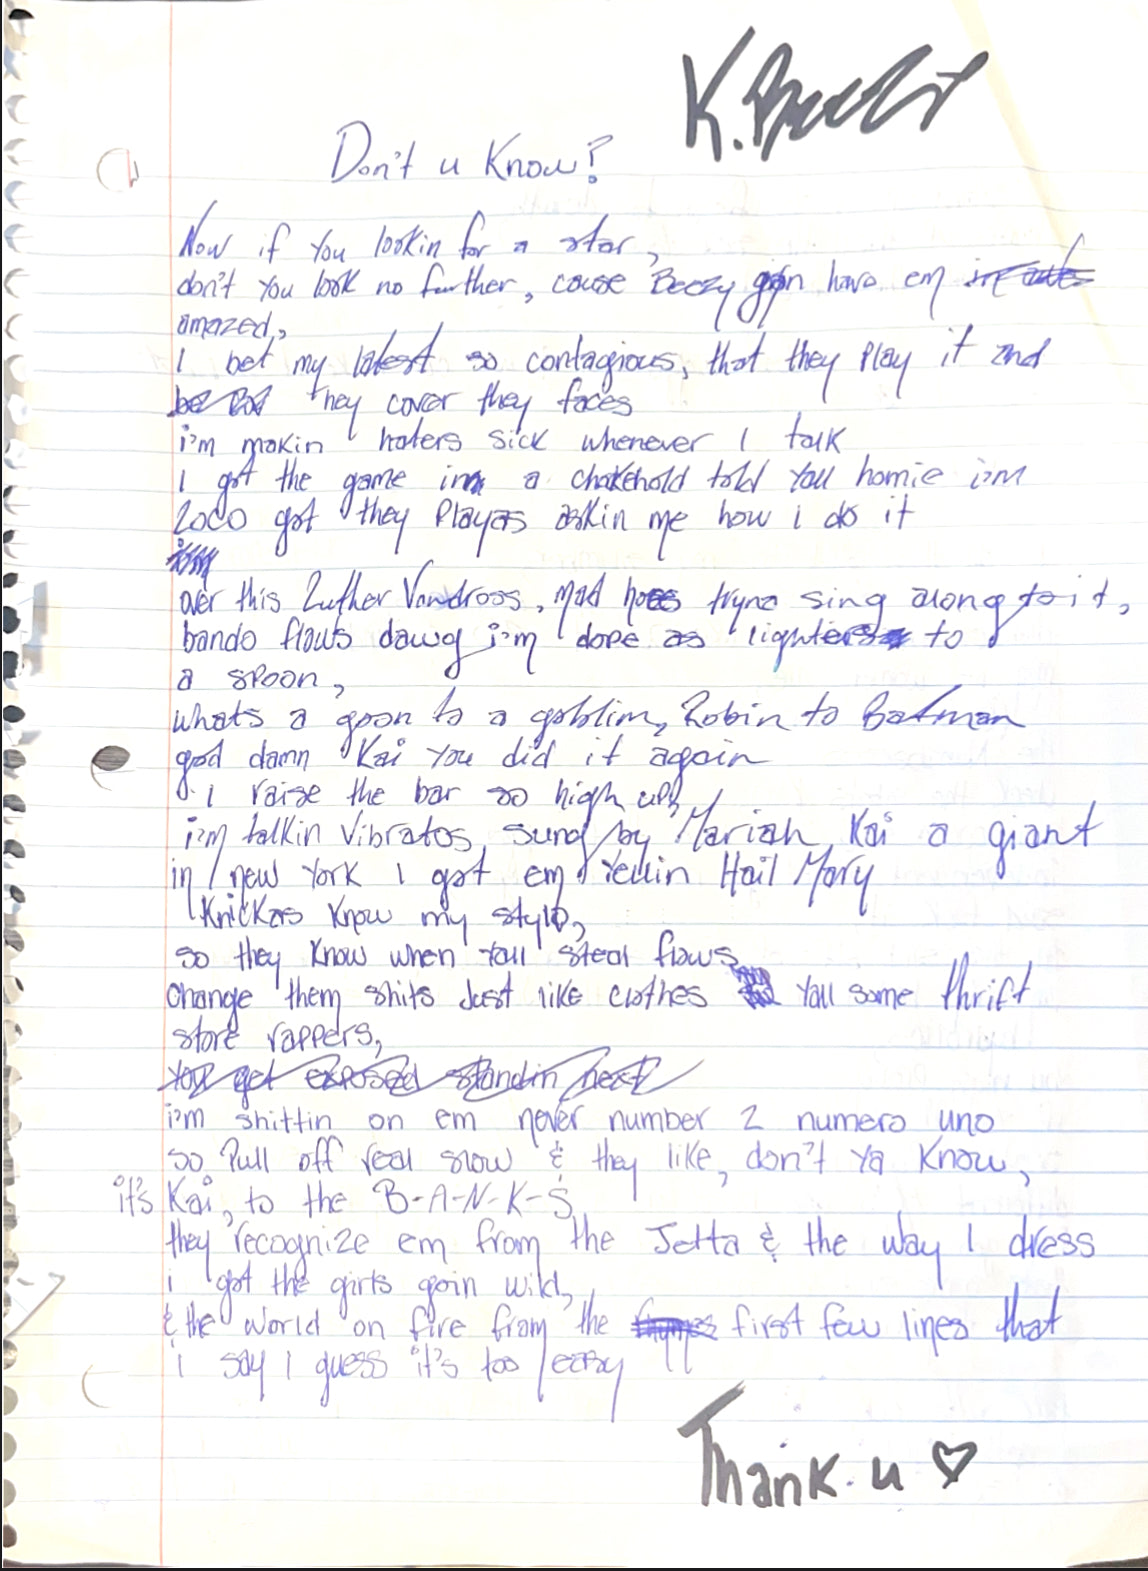 K.
Don't u Know?
Now if You lookin for a star,
don't You look no further, cause Beezy gon have em
amazed,
I bet my latest so contagious, that they Play it and
they cover they faces
i'm makin haters sick whenever I talk
I got the game in a chokehold told You homie i'm
Loco got they Playas askin me how i do it
over this Luther Vandross, mad hoes tryna sing along to it,
bando flows dawg i'm dope as lighters to
a spoon,
whats a goon to a goblin, Robin to Batman
god damn Kai You did it again
I raise the bar so high up,
i'm talkin Vibratos, sung by Mariah, Kai a giant
in new York I got em Yellin Hail Mary
Knickas Know my style,
so they Know when Yall steal flows
change them shits Just like clothes Yall some thrift
store rappers,
You get exposed standin next
i'm shittin on em never number 2 numero uno
so Pull off real slow & they like, don't Ya Know,
it's Kai, to the B-A-N-K-S
they recognize em from the Jetta & the way I dress
i got the girls goin wild,
& the world on fire from the first few lines that
i say I guess it's too easy
Thank u ♡